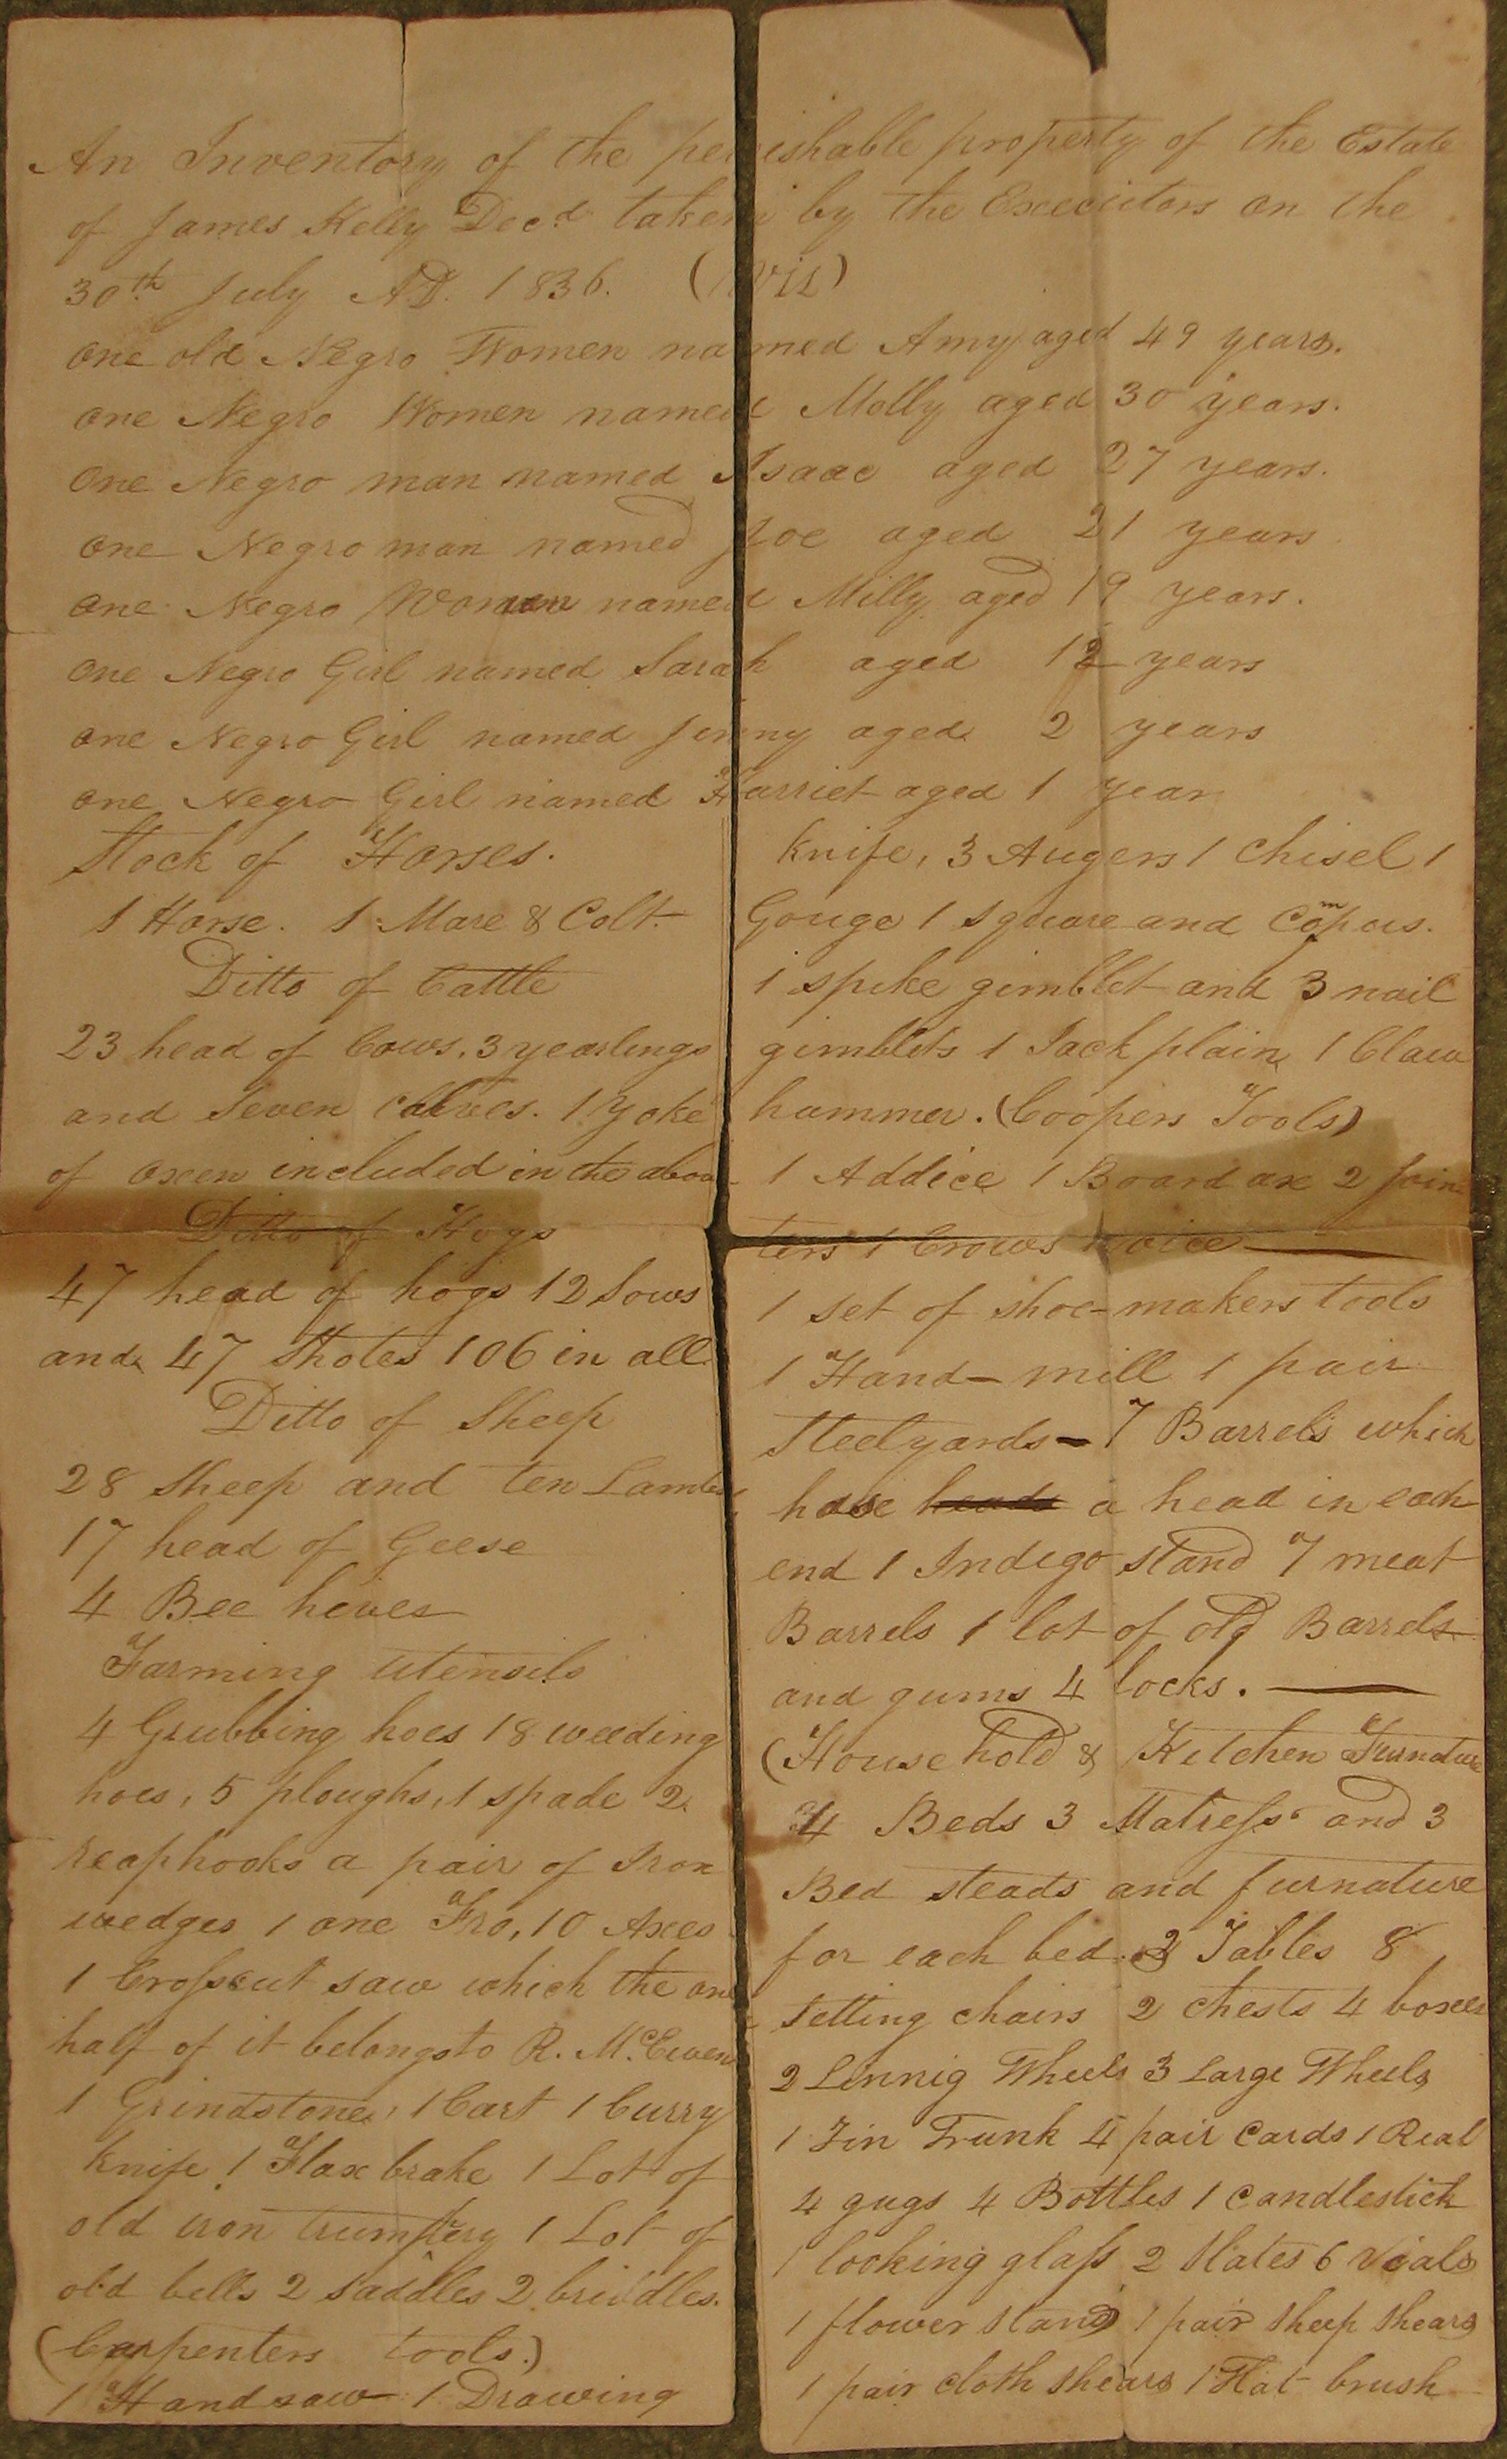 An Inventory of the perishable property of the Estate
of James Kelly Decd. taken by the Executors on the
30th. July AD. 1836. (Viz)
one old Negro Women named Amy aged 49 years.
one Negro Women named Molly aged 30 years.
One Negro man named Isaac aged 27 years.
one Negro man named Joe aged 21 years
one Negro Women named Milly aged 19 years.
one Negro Girl named Sarah aged 12 years
one Negro Girl named Jenny aged 2 years
one Negro Girl named Harriet aged 1 year
Stock of Horses.
1 Horse. 1 Mare & Colt.
Ditto of Cattle
23 head of Cows. 3 yearlings
and Seven calves. 1 Yoke
of oxen included in the above
Ditto of Hogs
47 head of hogs 12 Sows
and 47 Shotes 106 in all.
Ditto of Sheep
28 Sheep and ten Lambs
17 head of Geese
4 Bee hives
Farming utensils
4 Grubbing hoes 18 weeding
hoes, 5 ploughs, 1 spade 2
reaphooks a pair of Iron
wedges 1 one Fro, 10 Axes
1 Crosscut saw which the one
half of it belongs to R. McEwen
1 Grindstone, 1 Cart 1 Curry
Knife 1 Flax brake 1 Lot of
old iron trumptery 1 Lot of
old bells 2 saddles 2 briddles.
(Carpenters tools.)
1 Handsaw 1 Drawing
Knife, 3 Augers 1 Chisel 1
Gouge 1 square and Compas.
1 spike gimblet and 3 nail
gimblets 1 Jack plain 1 Claw
hammer. (Coopers Tools)
1 Addice 1 Board ax 2 Join
ters 1 Crows
1 set of shoe-makers tools
1 Hand-mill 1 pair
Steelyards - 7 Barrels which
have heads a head in each
end 1 Indego stand 7 meat
Barrels 1 lot of old Barrels
and gums 4 locks.
(House hold & Kitchen Furnature
4 Beds 3 Matress and 3
Bed steads and furnature
for each bed. 2 Tables 8
Setting chairs 2 chests 4 boxes
2 Linnig Wheels 3 Large Wheels
1 Tin Trunk 4 pair Cards 1 Real
4 gugs 4 Bottles 1 Candlestick
1 looking glass 2 Slates 6 Vials
1 flower stand 1 pair Sheep Shears
1 pair cloth shears 1 Hat brush